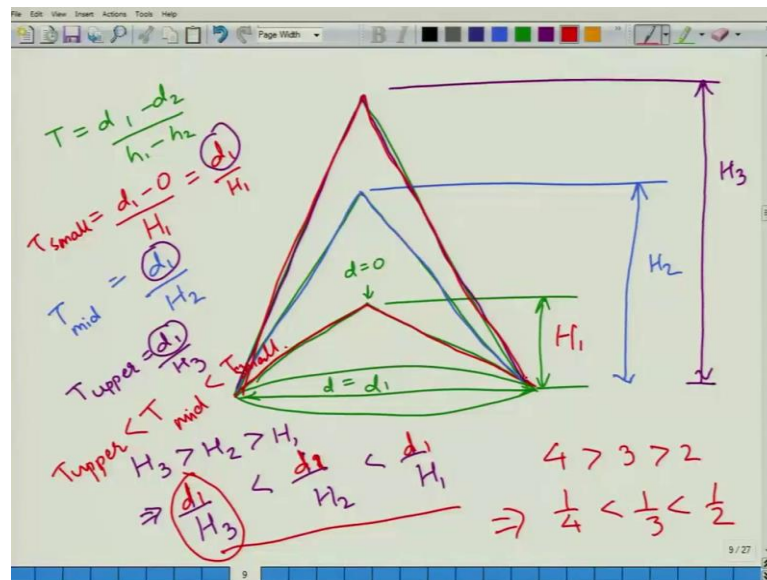 File Edit View Insert Actions Tools Help
Page Width
B I
T = d1 - d2 / h1 - h2
Tsmall = d1 - 0 / H1 = d1 / H1
Tmid = d1 / H2
Tupper = d1 / H3
Tupper < Tmid < Tsmall.
d=0
d = d1
H1
H2
H3
H3 > H2 > H1
⇒ d1/H3 < d1/H2 < d1/H1
4 > 3 > 2
⇒ 1/4 < 1/3 < 1/2
9/27
9